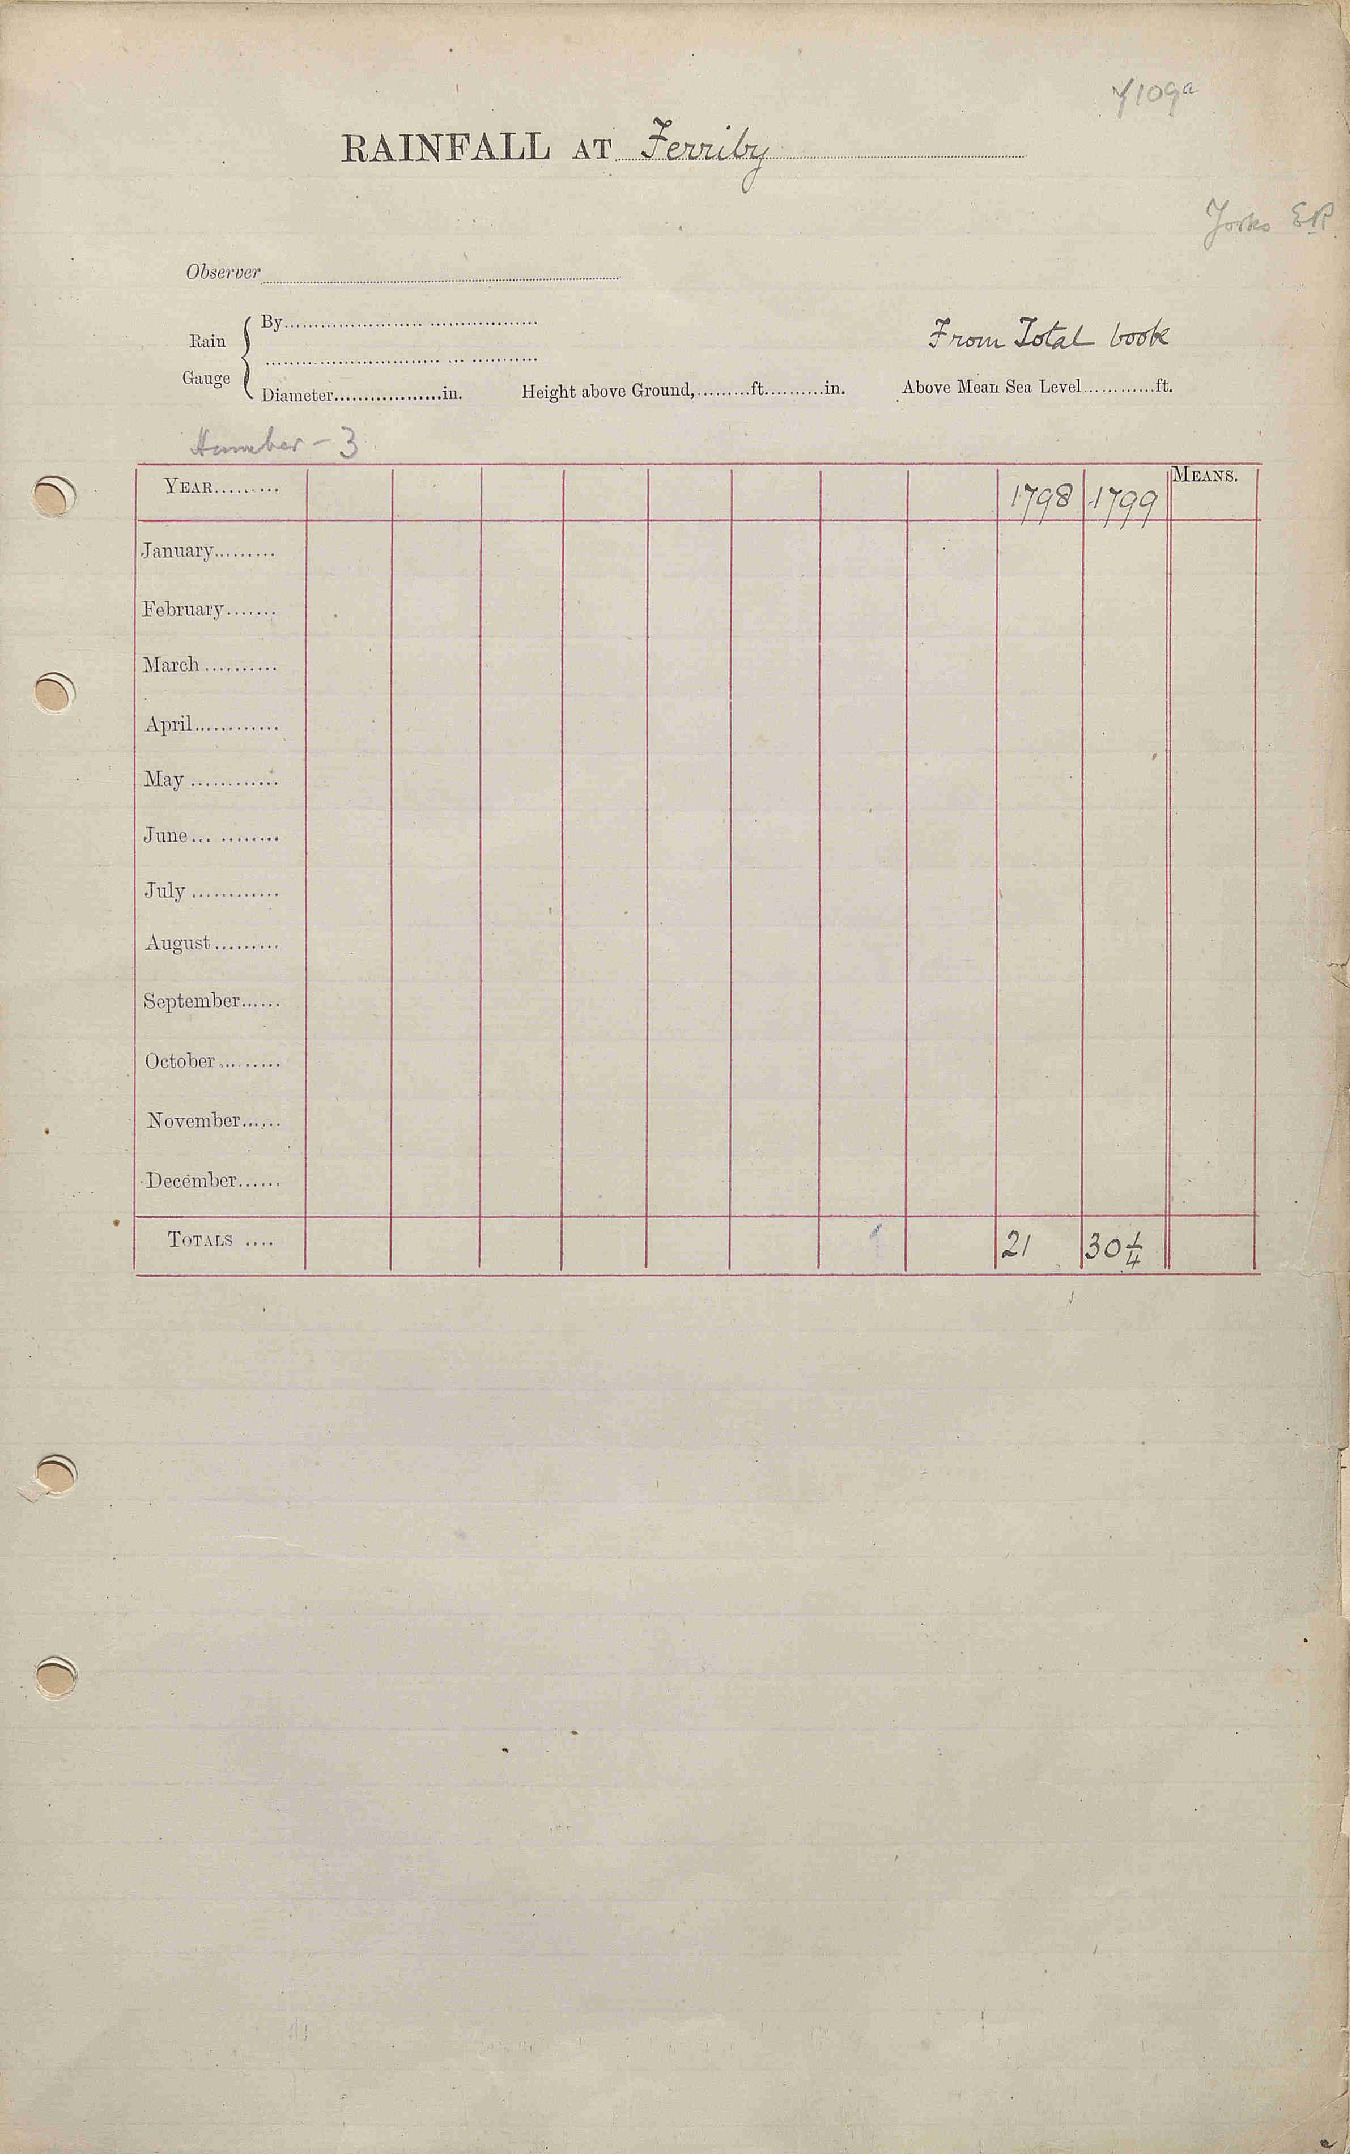 Y109a
RAINFALL AT Ferriby
Yorks ER.
Observer
Rain Gauge
By
From Total book
Diameter..................in. Height above Ground,.........ft..........in. Above Mean Sea Level............ft.
Humber - 3
YEAR......... 1798 1799 MEANS.
January.........
February.......
March..........
April............
May............
June... ........
July............
August.........
September......
October.........
November......
December......
TOTALS .... 21 30 1/4